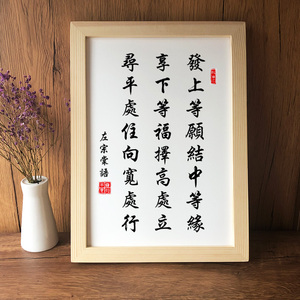 發上等願結中等緣
享下等福擇高處立
尋平處住向寬處行
左宗棠語